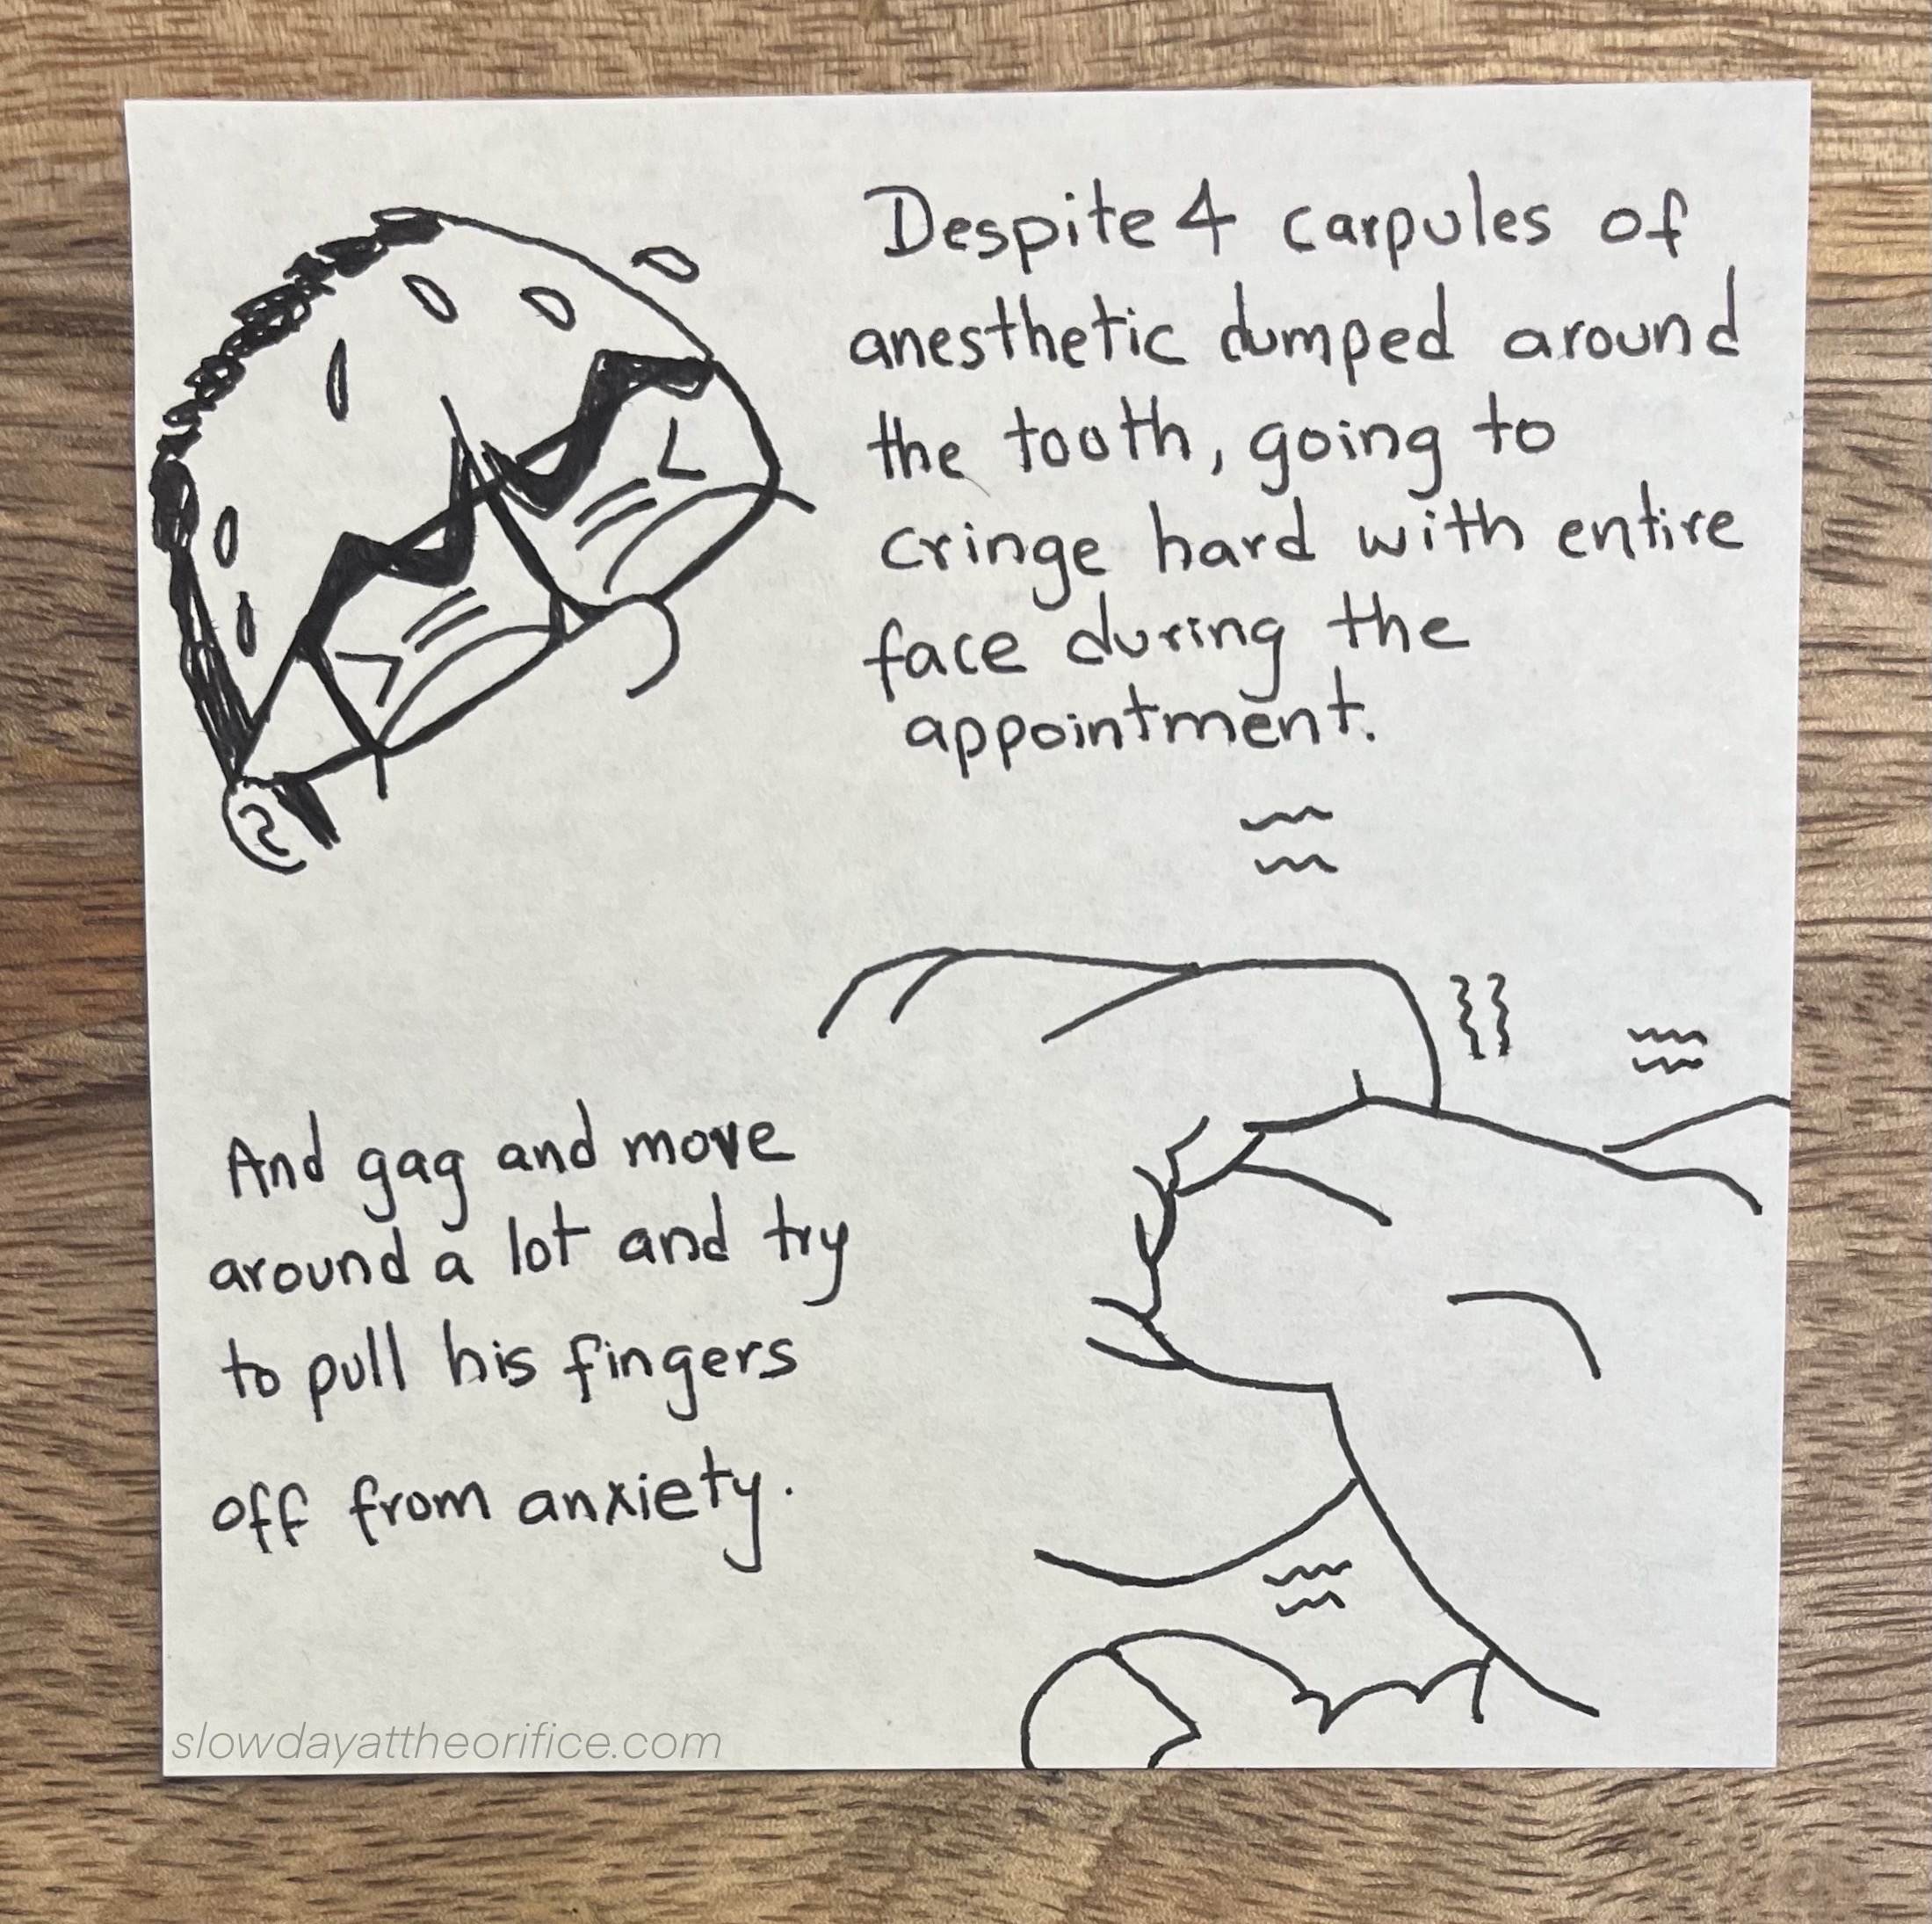 Despite 4 carpules of
anesthetic dumped around
the tooth, going to
cringe hard with entire
face during the
appointment.
And gag and move
around a lot and try
to pull his fingers
off from anxiety.
slowdayattheorifice.com